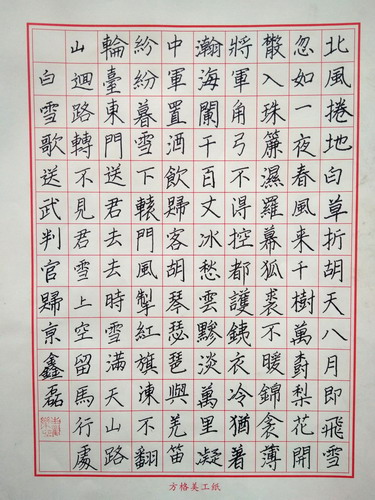 北風捲地白草折胡天八月即飛雪
忽如一夜春風来千樹萬樹梨花開
散入珠簾濕羅幕狐裘不暖錦衾薄
將軍角弓不得控都護銕衣冷猶著
瀚海闌干百丈冰愁雲黲淡萬里凝
中軍置酒飲歸客胡琴瑟琶與羌笛
紛紛暮雪下轅門風掣紅旗凍不翻
輪臺東門送君去去時雪滿天山路
山迴路轉不見君雪上空留馬行處
白雪歌送武判官歸京鑫磊
方格美工纸